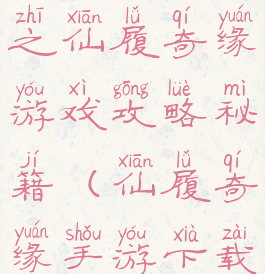 zhī xiān lǚ qí yuán
之仙履奇缘
yóu xì gōng lüè mì
游戏攻略秘
jí xiān lǚ qí
籍（仙履奇
yuán shǒu yóu xià zài
缘手游下载